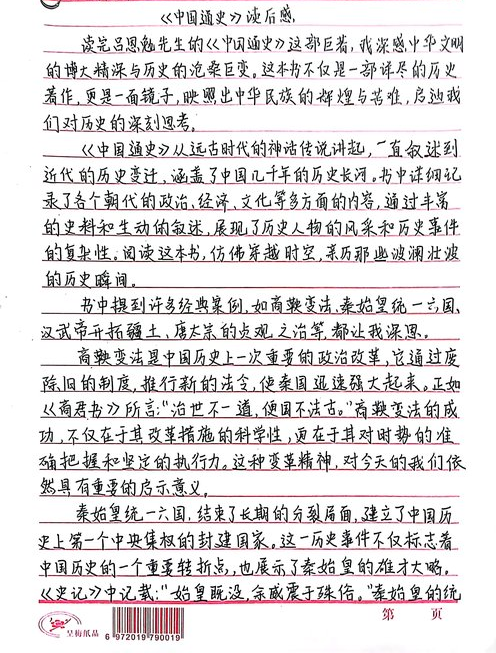 《中国通史》读后感
读完吕思勉先生的《中国通史》这部巨著，我深感中华文明
的博大精深与历史的沧桑巨变。这本书不仅是一部详尽的历史
著作，更是一面镜子，映照出中华民族的辉煌与苦难，启迪我
们对历史的深刻思考。
《中国通史》从远古时代的神话传说讲起，一直叙述到
近代的历史变迁，涵盖了中国几千年的历史长河。书中详细记
录了各个朝代的政治、经济、文化等多方面的内容，通过丰富
的史料和生动的叙述，展现了历史人物的风采和历史事件
的复杂性。阅读这本书，仿佛穿越时空，亲历那些波澜壮波
的历史瞬间。
书中提到许多经典案例，如商鞅变法、秦始皇统一六国、
汉武帝开拓疆土、唐太宗的贞观之治等，都让我深思。
商鞅变法是中国历史上一次重要的政治改革，它通过废
除旧的制度，推行新的法令，使秦国迅速强大起来。正如
《商君书》所言：“治世不一道，便国不法古。”商鞅变法的成
功，不仅在于其改革措施的科学性，更在于其对时势的准
确把握和坚定的执行力。这种变革精神，对今天的我们依
然具有重要的启示意义。
秦始皇统一六国，结束了长期的分裂局面，建立了中国历
史上第一个中央集权的封建国家。这一历史事件不仅标志着
中国历史的一个重要转折点，也展示了秦始皇的雄才大略。
《史记》中记载：“始皇既没，余威震于殊俗。”秦始皇的统
第 页
呈梅纸品
6 972019 790019